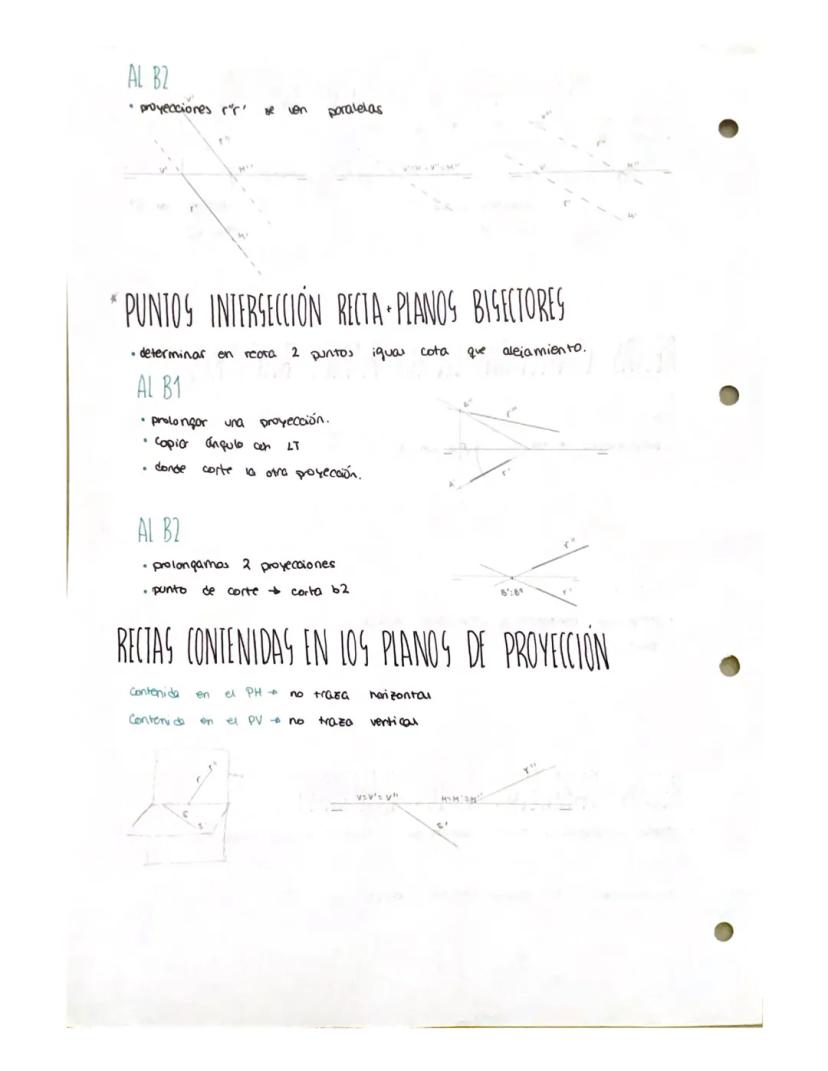 AL B2
• proyecciones r''r' se ven paralelas
V'' r''
V' H''
r'
H'
V'=H'=V''=H''
V'' r''
V' H''
r' H'
* PUNTOS INTERSECCIÓN RECTA + PLANOS BISECTORES
• determinar en recta 2 puntos igual cota que alejamiento.
AL B1
• prolongar una proyección.
• copio ángulo con LT
• donde corte la otra proyección.
A'' r''
A' r'
AL B2
• prolongamos 2 proyecciones
• punto de corte → corta b2
r''
B'=B'' r'
RECTAS CONTENIDAS EN LOS PLANOS DE PROYECCIÓN
Contenida en el PH → no traza horizontal
Contenida en el PV → no traza vertical
r r''
s s'
V=V'=V'' H=H'=H'' r''
s'